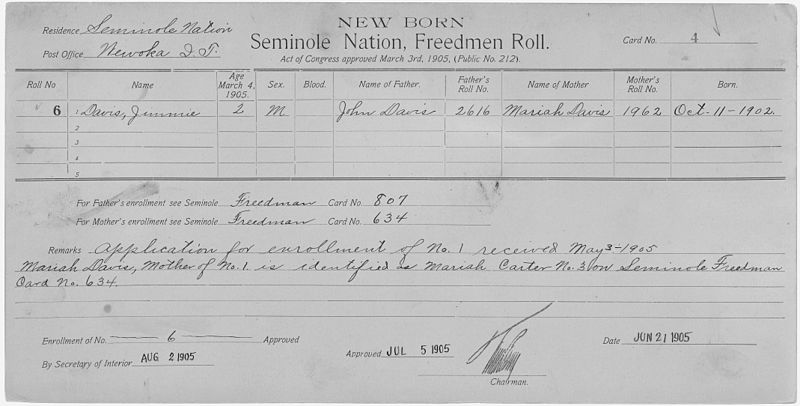 NEW BORN
Residence Seminole Nation
Seminole Nation, Freedmen Roll.
Card No. 4
Post Office Wewoka I. T.
Act of Congress approved March 3rd, 1905, (Public No. 212).
Roll No Name Age March 4, 1905. Sex. Blood. Name of Father. Father's Roll No. Name of Mother Mother's Roll No. Born.
6 1 Davis, Jimmie 2 M John Davis 2616 Mariah Davis 1962 Oct-11-1902.
2
3
4
5
For Father's enrollment see Seminole Freedman Card No. 807
For Mother's enrollment see Seminole Freedman Card No. 634
Remarks Application for enrollment of No. 1 received May 3-1905
Mariah Davis, Mother of No. 1 is identified as Mariah Carter No. 3 on Seminole Freedman
Card No. 634.
Enrollment of No. 6 Approved
By Secretary of Interior AUG 2 1905
Approved JUL 5 1905
Chairman.
Date JUN 21 1905